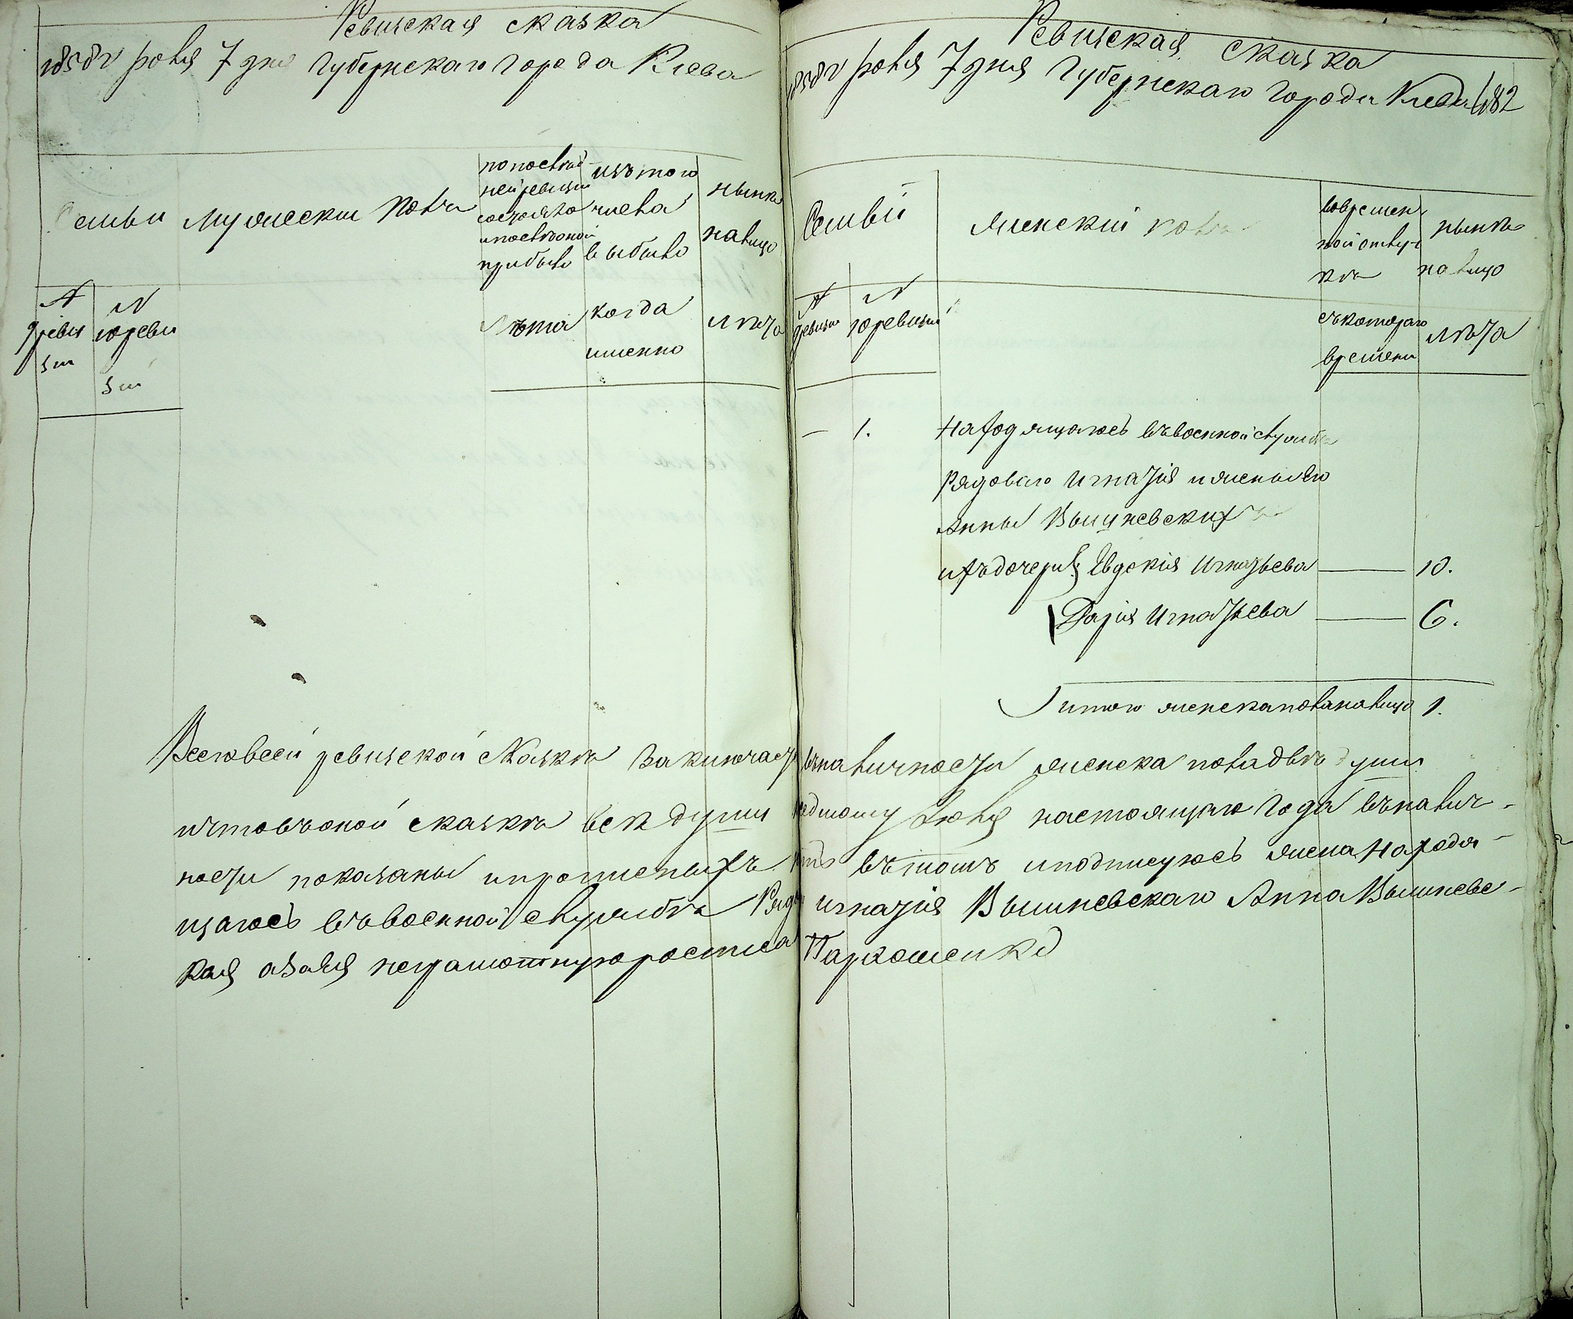 Ревизская сказка
1858го Іюля 7 дня Губернскаго города Кіева
Семьи
Мужескій полъ
по послѣд-
ней ревизіи
состояло
и послѣ оной
прибыло
изъ того
числа
выбыло
нынѣ
на лицо
№
№
Лѣта
когда
именно
лѣта
Ревизская сказка
1858го Іюля 7 дня Губернскаго города Кіева 482
Семьи
Женскій полъ
во времен-
ной отлуч-
кѣ
нынѣ
на лицо
№
№
съ котораго
времени
лѣта
— 1. Находящагось въ военной службѣ
Рядоваго Игнатія и жены его
Анны Вышневскихъ
ихъ дочери Евдокія Игнатьева — 10.
Дарія Игнатьева — 6.
Итого женска пола на лицо 1.
Всего в сей ревизской сказкѣ заключается въ наличности женска пола двѣ души
и что въ оной сказкѣ всѣ души къ седмому Іюля настоящаго года въ налич-
ности показаны и прописныхъ нѣтъ въ томъ и подписуюсь жена Находя-
щагось въ военной службѣ Рядов Игнатія Вышневскаго Анна Вышневс-
кая а за ея неграмотную росписа Пархоменко